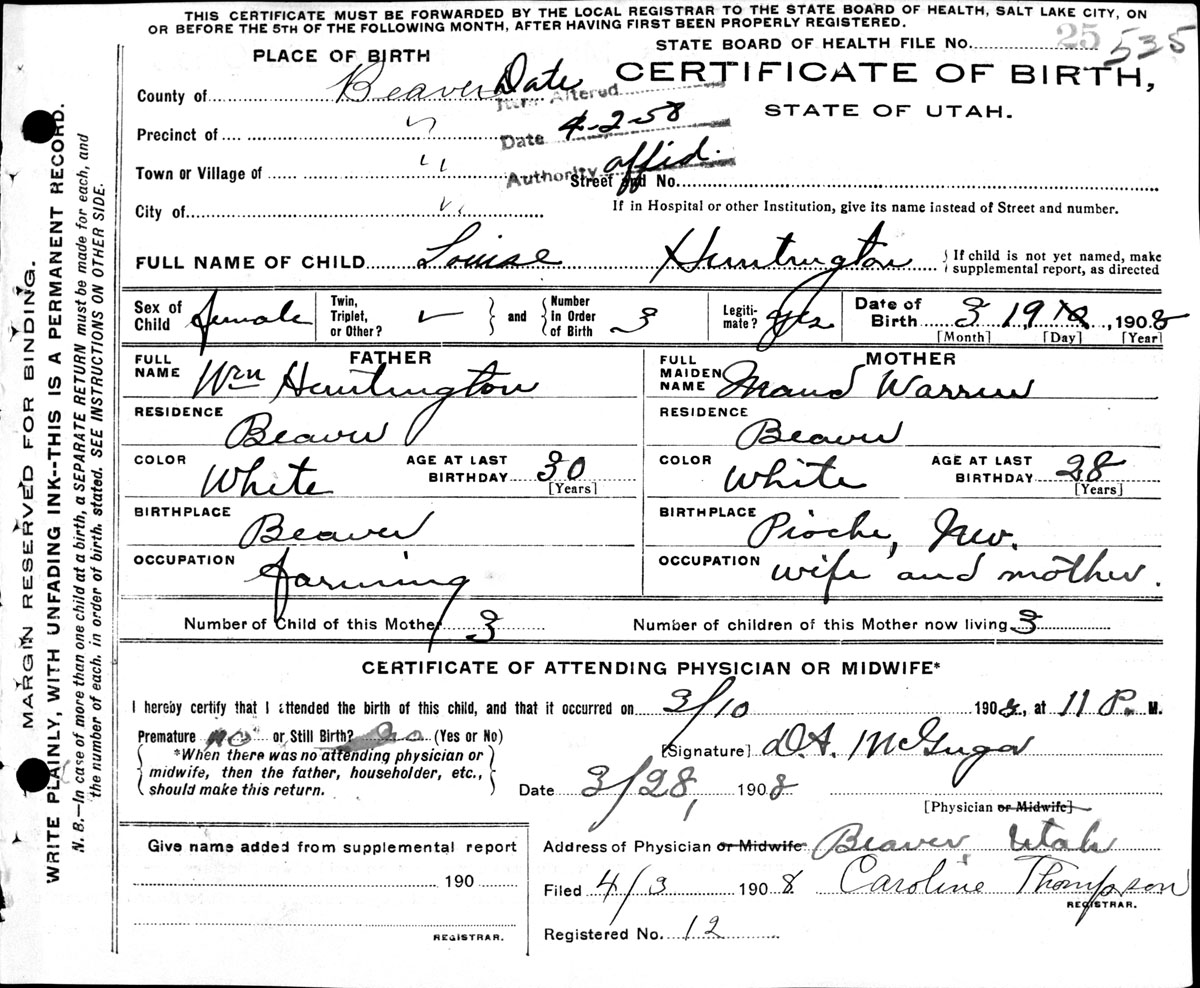 THIS CERTIFICATE MUST BE FORWARDED BY THE LOCAL REGISTRAR TO THE STATE BOARD OF HEALTH, SALT LAKE CITY, ON
OR BEFORE THE 5TH OF THE FOLLOWING MONTH, AFTER HAVING FIRST BEEN PROPERLY REGISTERED.
STATE BOARD OF HEALTH FILE No. 25 535
PLACE OF BIRTH
CERTIFICATE OF BIRTH,
STATE OF UTAH.
County of Beaver
Date
Item Altered
Precinct of "
Date 4-2-58
Town or Village of "
Authority affid.
Street and No.
City of "
If in Hospital or other Institution, give its name instead of Street and number.
FULL NAME OF CHILD Louise Huntington { If child is not yet named, make supplemental report, as directed
Sex of Child female
Twin, Triplet, or Other? ✓ } and { Number in Order of Birth 3
Legiti-mate? yes
Date of Birth 3 19 10, 1908
[Month] [Day] [Year]
FATHER
FULL NAME Wm Huntington
RESIDENCE
Beaver
COLOR White AGE AT LAST BIRTHDAY 30 [Years]
BIRTHPLACE
Beaver
OCCUPATION
farming
MOTHER
FULL MAIDEN NAME Maud Warren
RESIDENCE
Beaver
COLOR White AGE AT LAST BIRTHDAY 28 [Years]
BIRTHPLACE
Pioche, Nev.
OCCUPATION
wife and mother.
Number of Child of this Mother 3 Number of children of this Mother now living 3
CERTIFICATE OF ATTENDING PHYSICIAN OR MIDWIFE*
I hereby certify that I attended the birth of this child, and that it occurred on 3/10 1908, at 11 P. M.
Premature no or Still Birth? no (Yes or No)
{ *When there was no attending physician or midwife, then the father, householder, etc., should make this return. }
[Signature] D.A. McGregor
Date 3/28, 1908
[Physician or Midwife]
Give name added from supplemental report
190
REGISTRAR.
Address of Physician or Midwife Beaver, Utah
Filed 4/3 1908 Caroline Thompson
REGISTRAR.
Registered No. 12
MARGIN RESERVED FOR BINDING.
WRITE PLAINLY, WITH UNFADING INK--THIS IS A PERMANENT RECORD.
N. B.—In case of more than one child at a birth, a SEPARATE RETURN must be made for each, and
the number of each, in order of birth, stated. SEE INSTRUCTIONS ON OTHER SIDE.